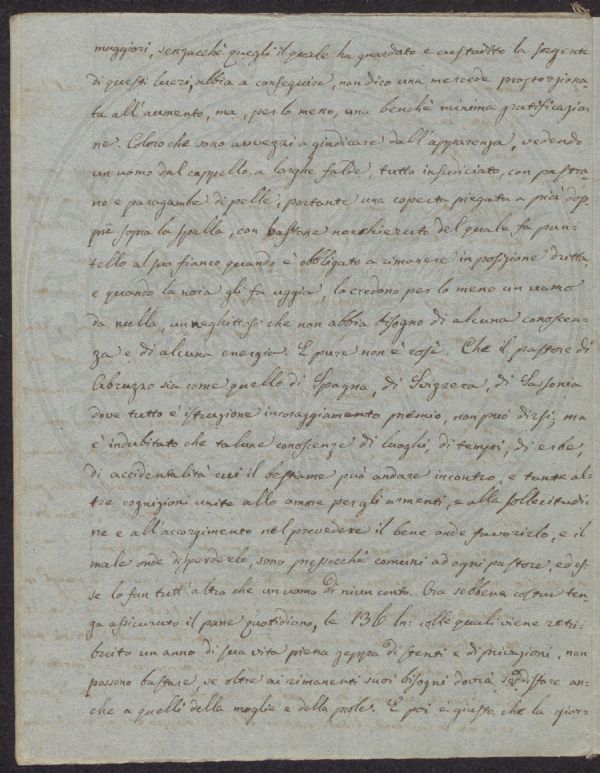 maggiori, senzacchè quegli il quale ha guardato e custodito la sorgente
di questi lucri, abbia a conseguire, non dico una mercede proporziona-
ta all'aumento, ma, per lo meno, una benchè minima gratificazio-
ne. Coloro che sono avvezzi a giudicare dall'apparenza, vedendo
un uomo dal cappello a larghe falde, tutto insudiciato, con pastra-
no e paragambe di pelle, portante una coperta piegata a più dop-
pii sopra la spalla, con bastone nocchieruto del quale fa pun-
tello al suo fianco quando è obbligato a rimanere in posizione dritta,
e quando la noia gli fa uggia, lo credono per lo meno un uomo
da nulla, un neghittoso che non abbia bisogno di alcuna conoscen-
za e di alcuna energia. E pure non è così. Che il pastore di
Abruzzo sia come quello di Spagna, di Svizzera, di Sassonia
dove tutto è istruzione incoraggiamento premio, non può dirsi; ma
è indubitato che talune conoscenze di luoghi, di tempi, di erbe,
di accidentalità cui il bestiame può andare incontro, e tante al-
tre cognizioni unite allo amore per gli armenti, e alla sollecitudi-
ne e all'accorgimento nel prevedere il bene onde favorirlo, e il
male onde disperderlo, sono pressocchè comuni ad ogni pastore, ed es-
se lo fan tutt'altro che un uomo di niun conto. Ora sebbene costui ten-
ga assicurato il pane quotidiano, le 136 ln: colle quali viene retri-
buito un anno di sua vita piena zeppa di stenti e di privazioni, non
possono bastare, se oltre ai rimanenti suoi bisogni dovrà soddisfare an-
che a quelli della moglie e della prole. E poi è giusto che la gior-